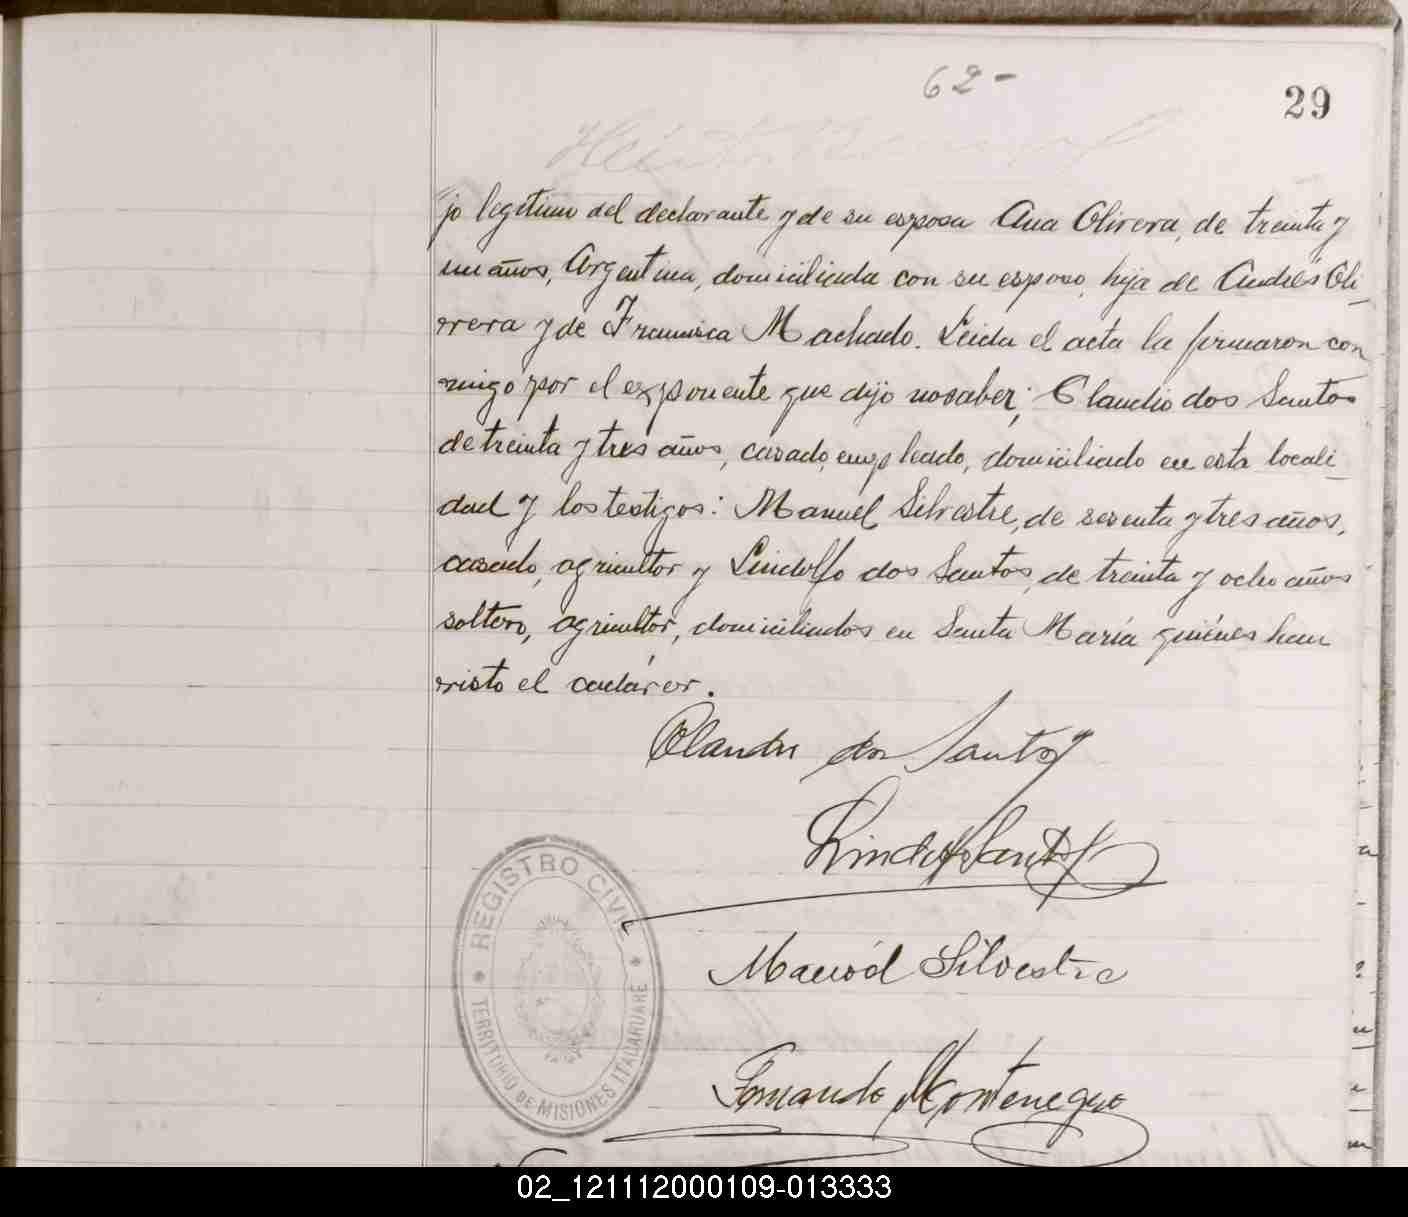 62-
29
jo legítimo del declarante y de su esposa Ana Olivera, de treinta y
un años, Argentina, domiciliada con su esposo, hija de Andrés Oli-
vera y de Francisca Machado. Leida el acta la firmaron con
migo por el exponente que dijo no saber; Claudio dos Santos
de treinta y tres años, casado, empleado, domiciliado en esta locali-
dad y los testigos: Manuel Silvestre, de sesenta y tres años,
casado, agricultor y Lindolfo dos Santos, de treinta y ocho años
soltero, agricultor, domiciliados en Santa María quiénes han
visto el cadáver.
Claudio dos Santos
Lindolfo Santos
Manoel Silvestre
REGISTRO CIVIL
TERRITORIO DE MISIONES ITACARUARE
Fernando Montenegro
02_121112000109-013333